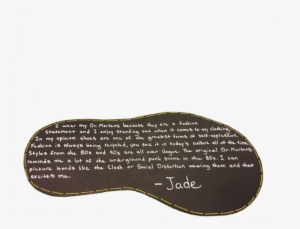 I wear my Dr. Martens because they are a fashion
statement and I enjoy standing out when it comes to my clothing.
In my opinion shoes are one of the greatest forms of self-expression.
Fashion is always being recycled, you see it in today's culture all of the time.
Styles from the 80s and 90s are all over Vogue. The original Dr. Martens
reminds me a lot of the underground punk scene in the 80s. I can
picture bands like the Clash or Social Distortion wearing them and that
excites me.
- Jade